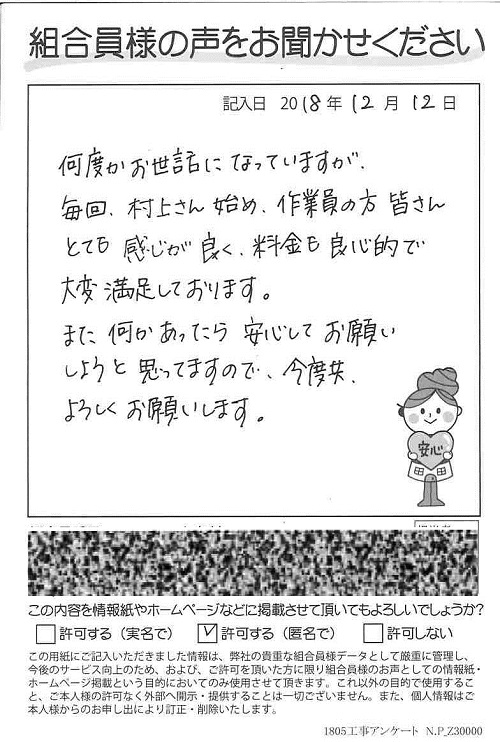 組合員様の声をお聞かせください
記入日 2018年 12月 12日
何度かお世話になっていますが、
毎回、村上さん始め、作業員の方 皆さん
とても 感じが 良く、料金も 良心的で
大変 満足しております。
また 何か あったら 安心して お願い
しようと 思ってますので、今度共、
よろしく お願いします。
安心
この内容を情報紙やホームページなどに掲載させて頂いてもよろしいでしょうか?
許可する(実名で) 許可する(匿名で) 許可しない
この用紙にご記入いただきました情報は、弊社の貴重な組合員様データとして厳重に管理し、
今後のサービス向上のため、および、ご許可を頂いた方に限り組合員様のお声としての情報紙・
ホームページ掲載という目的においてのみ使用させて頂きます。これ以外の目的で使用するこ
と、ご本人様の許可なく外部へ開示・提供することは一切ございません。また、個人情報はご
本人様からのお申し出により訂正・削除いたします。
1805工事アンケート N.P_Z30000